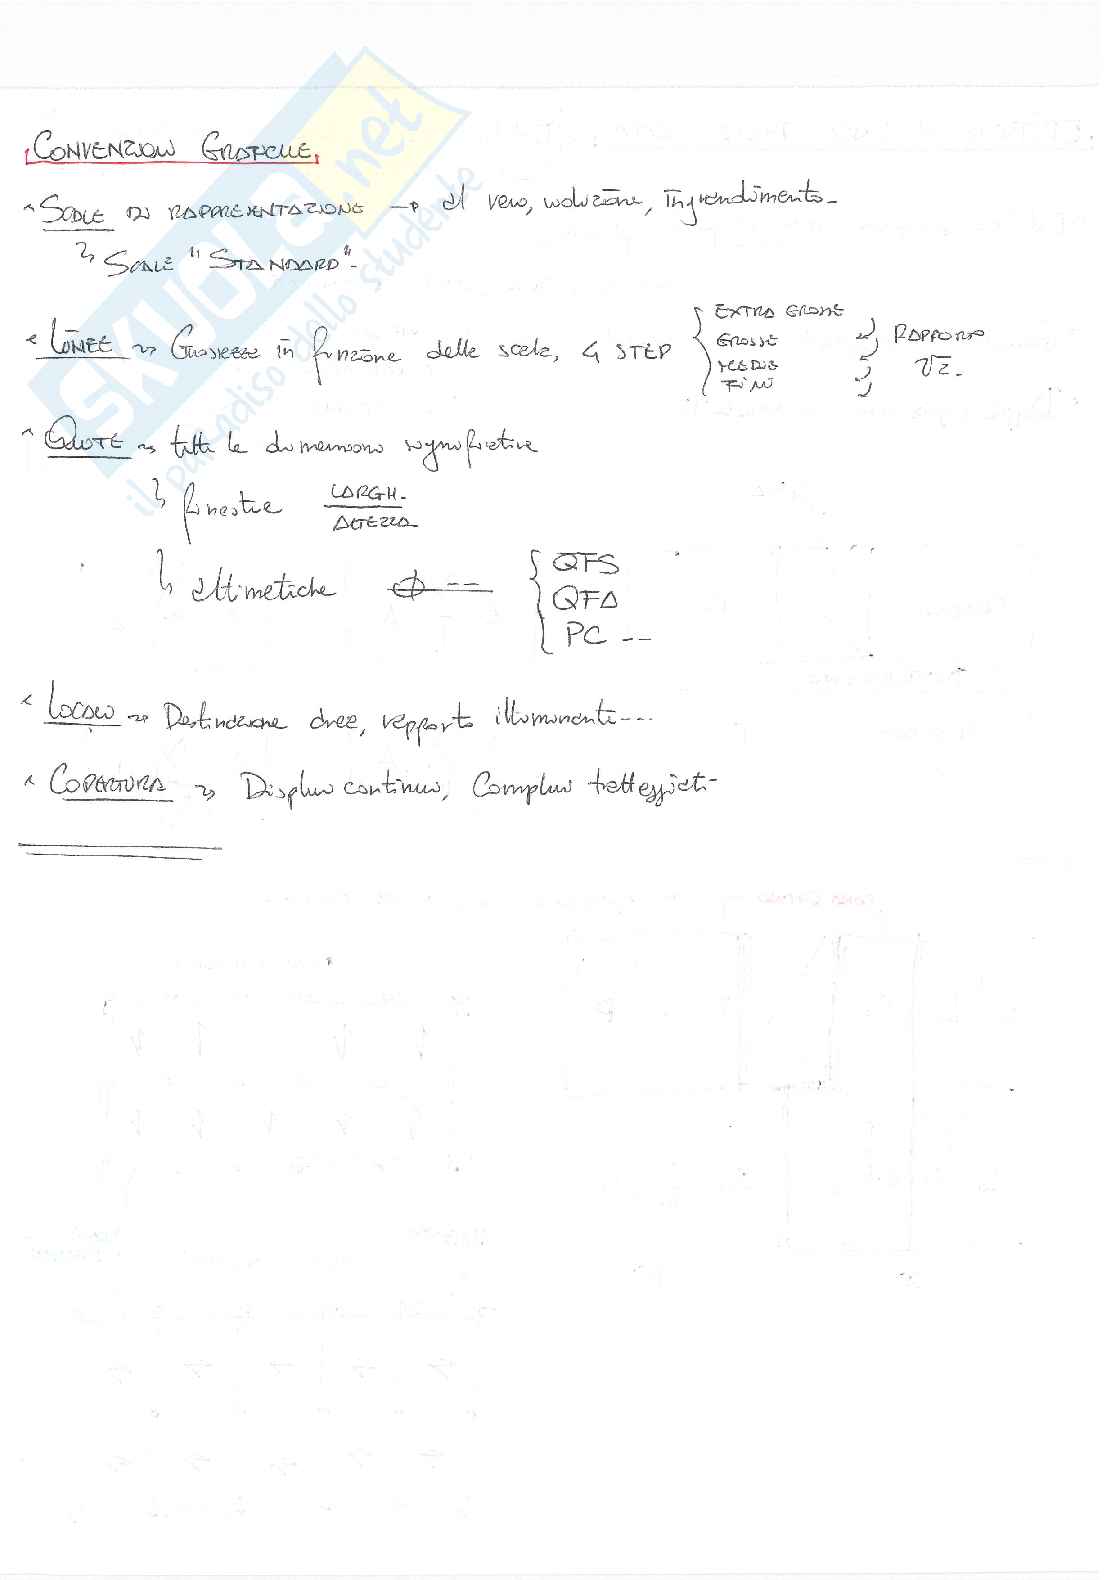 CONVENZIONI GRAFICHE
SCALE DI RAPPRESENTAZIONE → al vero, riduzione, ingrandimento
SCALE "STANDARD"
LINEE → Grossezze in funzione della scala, 4 STEP { EXTRA GROSSE
GROSSE
MEDIE
FINI
RAPPORTO
√2.
QUOTE → tutte le dimensioni significative
finestre LARGH.
ALTEZZA
altimetriche { QFS
QFA
PC --
LOCALI → Destinazione area, rapporto illuminanti---
COPERTURA → Displuvi continui, Compluvi tratteggiati
SKUOLA.net
il paradiso dello studente